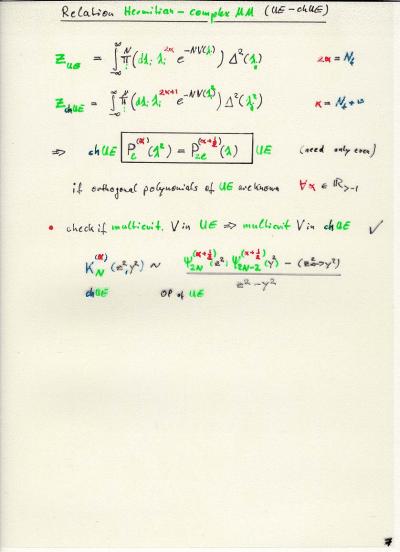 Relation Hermitian - complex MM (UE - chUE)
Z_UE = ∫_{-∞}^{∞} ∏_i^N (dλ_i λ_i^{2α} e^{-NV(λ_i)}) Δ²(λ_i) 2α = N_f
Z_chUE = ∫_{-∞}^{∞} ∏_i^N (dλ_i λ_i^{2α+1} e^{-NV(λ_i²)}) Δ²(λ_i²) α = N_f + ν
⇒ chUE P_l^{(α)}(λ²) = P_{2l}^{(α+½)}(λ) UE (need only even)
if orthogonal polynomials of UE are known ∀α ∈ ℝ_{>-1}
• check if multicrit. V in UE ⇒ multicrit V in chUE ✓
K_N^{(α)}(z²,y²) ~ Ψ_{2N}^{(α+½)}(z²) Ψ_{2N-2}^{(α+½)}(y²) - (z²↔y²)
z² - y²
chUE OP of UE
7